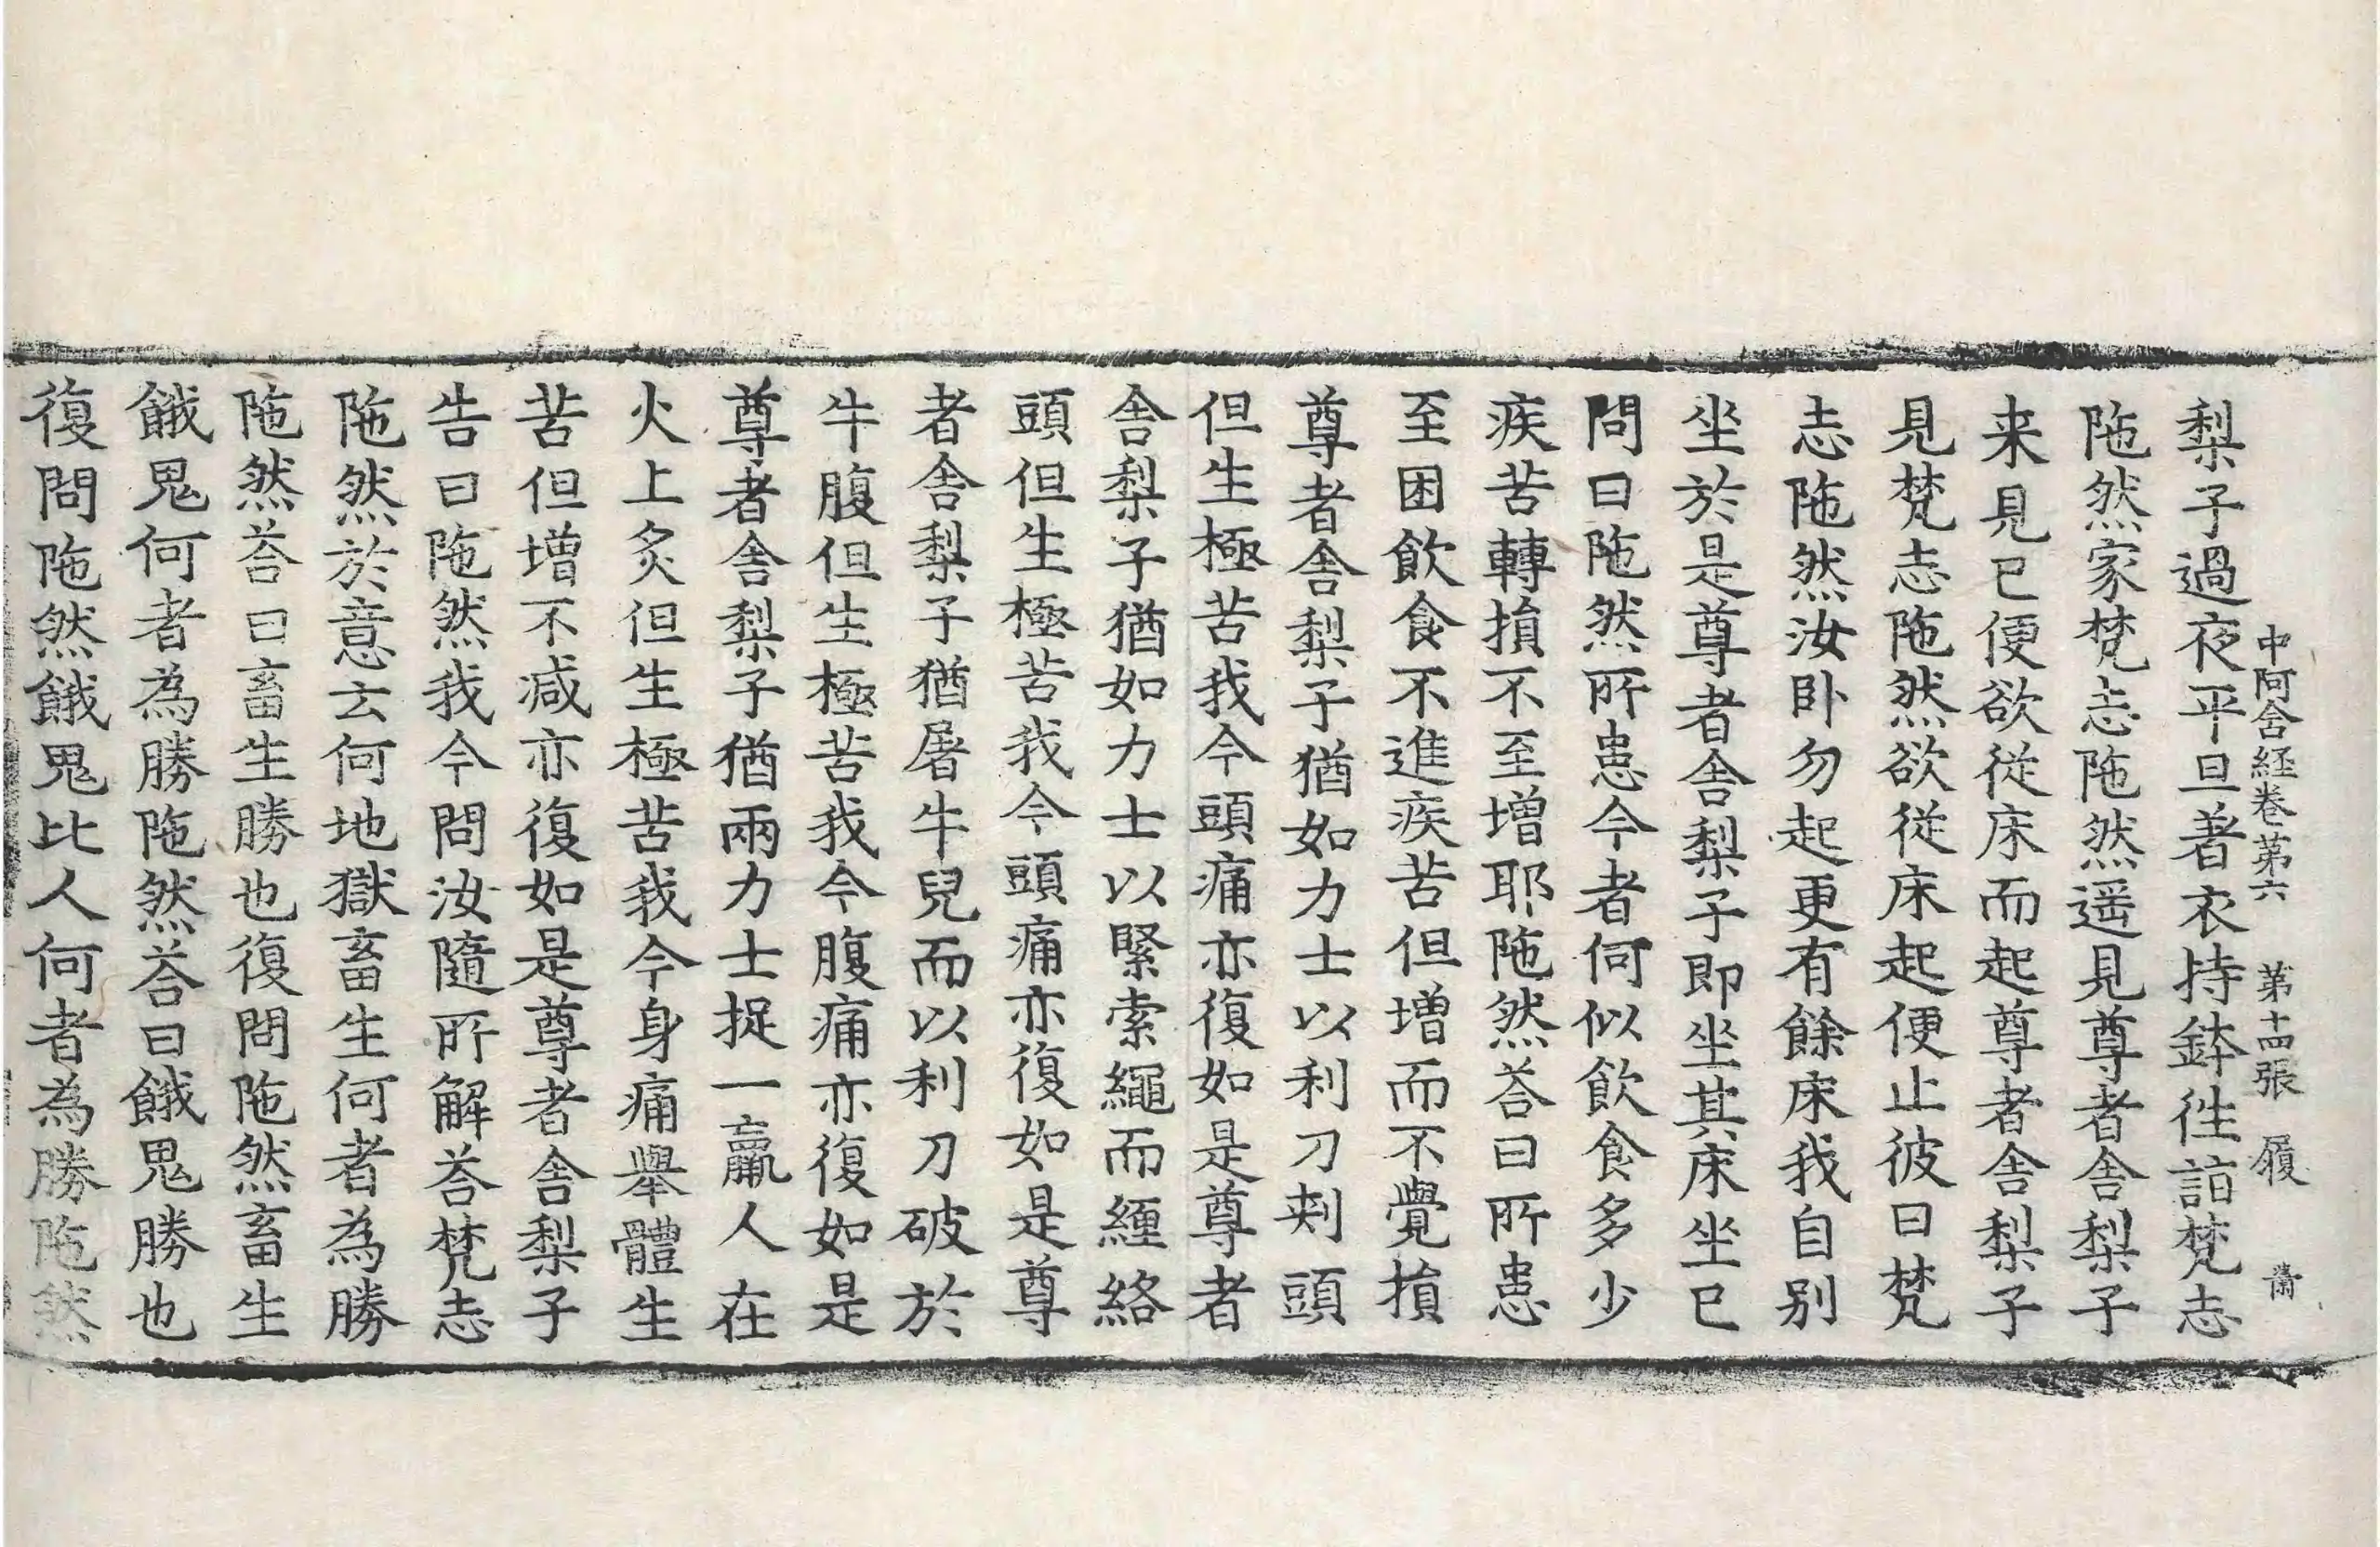 中阿含経卷第六 第十四張 履 
梨子過夜平旦著衣持鉢徃詣梵志
陁然家梵志陁然遥見尊者舎梨子
来見已便欲従床而起尊者舎梨子
見梵志陁然欲従床起便止彼曰梵
志陁然汝卧勿起更有餘床我自别
坐於是尊者舎梨子即坐其床坐已
問曰陁然所患今者何似飲食多少
疾苦轉損不至增耶陁然荅曰所患
至困飲食不進疾苦但增而不覺損
尊者舎梨子猶如力士以利刀刾頭
但生極苦我今頭痛亦復如是尊者
舎梨子猶如力士以緊索繩而纏絡
頭但生極苦我今頭痛亦復如是尊
者舎梨子猶屠牛兒而以利刀破於
牛腹但生極苦我今腹痛亦復如是
尊者舎梨子猶兩力士捉一羸人在
火上炙但生極苦我今身痛舉體生
苦但增不减亦復如是尊者舎梨子
告曰陁然我今問汝隨所解荅梵志
陁然於意云何地獄畜生何者為勝
陁然荅曰畜生勝也復問陁然畜生
餓鬼何者為勝陁然荅曰餓鬼勝也
復問陁然餓鬼比人何者為勝陁然